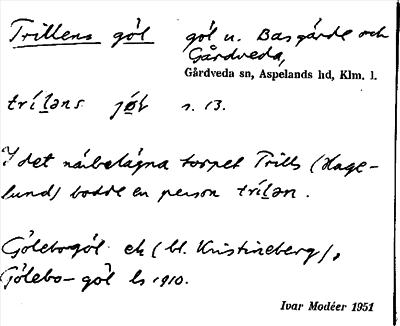 Trillens göl göl u. Basgårde och
Gårdveda,
Gårdveda sn, Aspelands hd, Klm. l.
tri̱ləns jø̱l s. 13.
I det närbelägna torpet Trills (Hage-
lund) bodde en person tri̱lən.
Gölebogöl ek (bl. Kristineberg),
Gölebo-göl ls 1910.
Ivar Modéer 1951